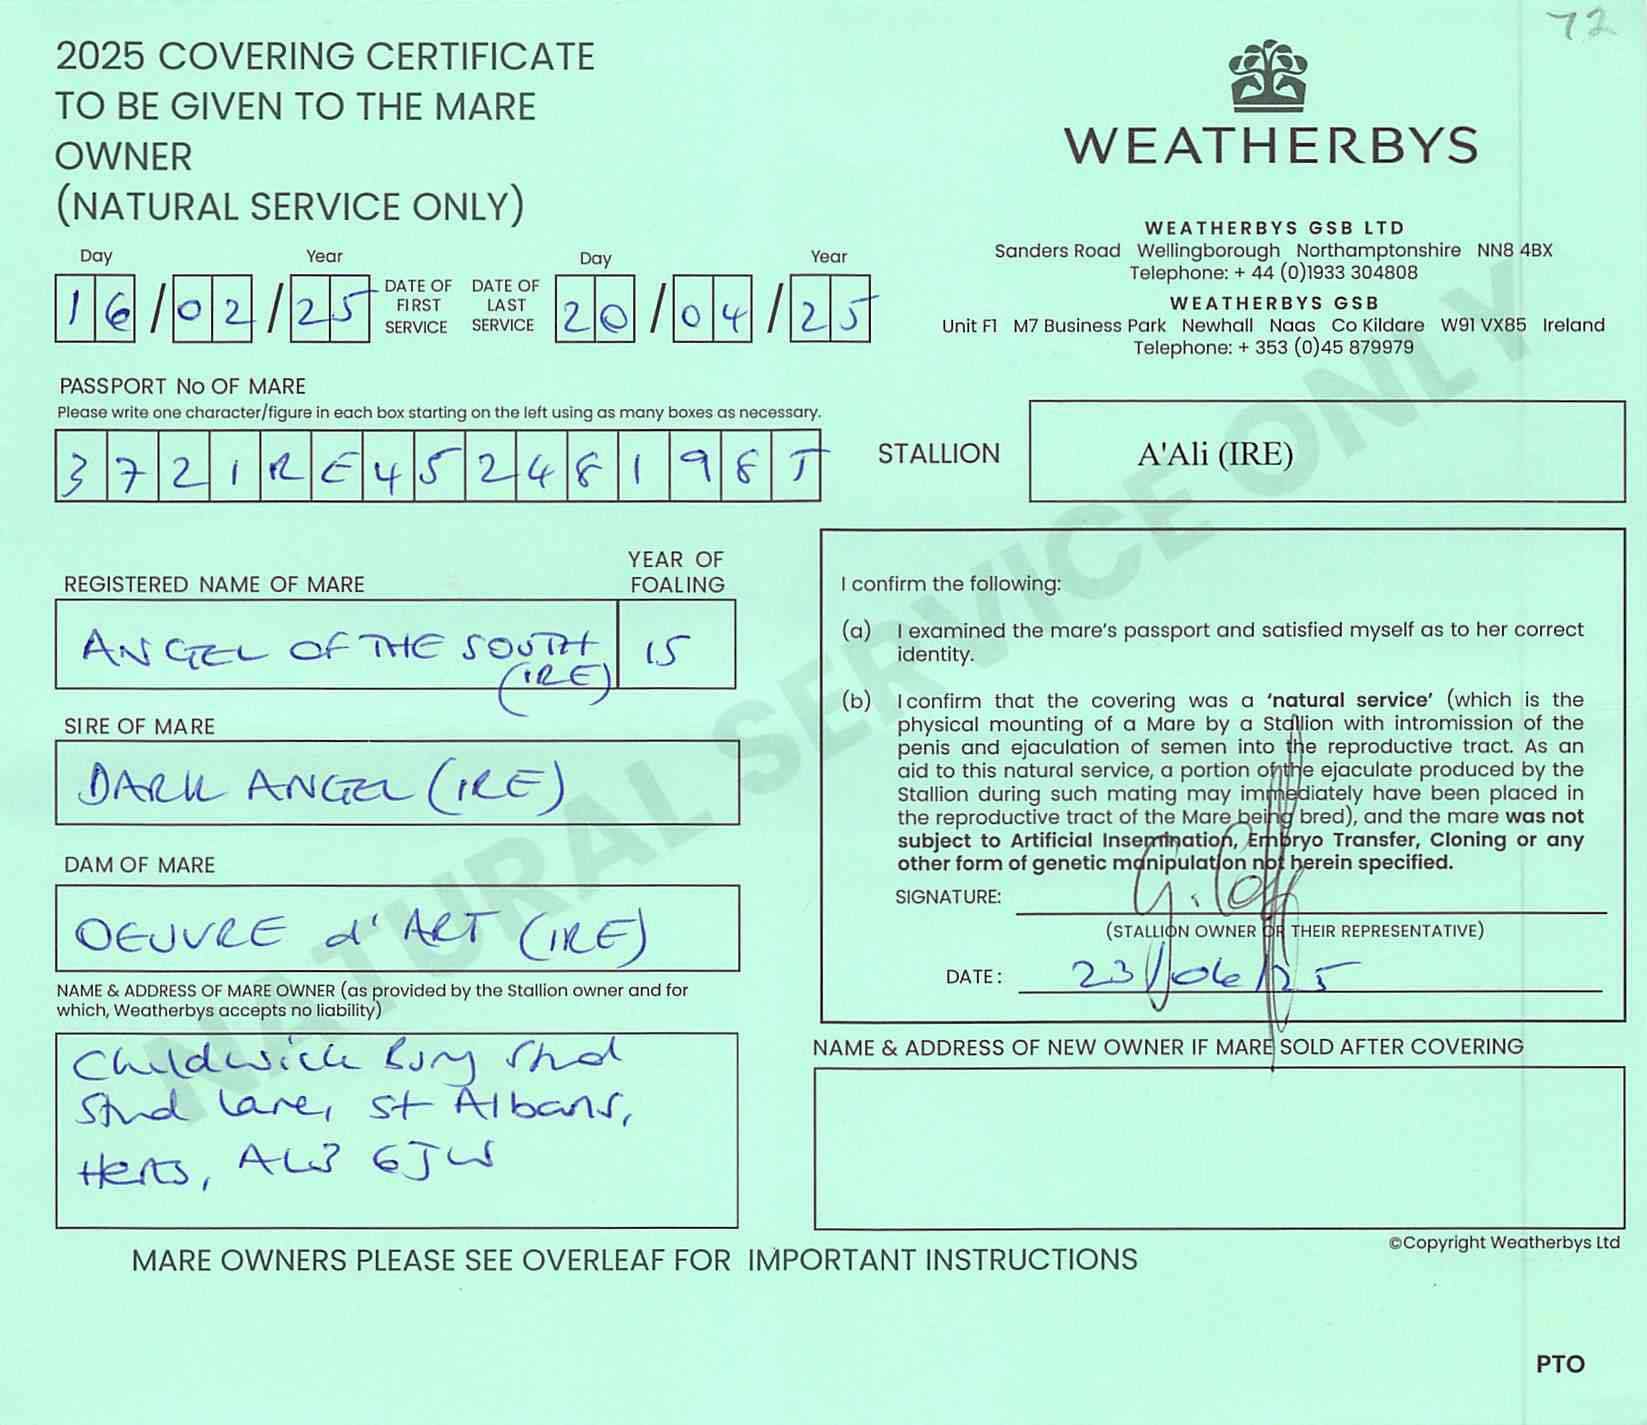 72
2025 COVERING CERTIFICATE
TO BE GIVEN TO THE MARE
OWNER
(NATURAL SERVICE ONLY)
WEATHERBYS
WEATHERBYS GSB LTD
Sanders Road Wellingborough Northamptonshire NN8 4BX
Telephone: + 44 (0)1933 304808
WEATHERBYS GSB
Unit F1 M7 Business Park Newhall Naas Co Kildare W91 VX85 Ireland
Telephone: + 353 (0)45 879979
Day Year
16/02/25
DATE OF
FIRST
SERVICE
DATE OF
LAST
SERVICE
Day Year
20/04/25
PASSPORT No OF MARE
Please write one character/figure in each box starting on the left using as many boxes as necessary.
372IRE45248198T
STALLION
A'Ali (IRE)
REGISTERED NAME OF MARE
YEAR OF
FOALING
ANGEL OF THE SOUTH
(IRE)
15
SIRE OF MARE
DARK ANGEL (IRE)
DAM OF MARE
OEUVRE d'ART (IRE)
NAME & ADDRESS OF MARE OWNER (as provided by the Stallion owner and for
which, Weatherbys accepts no liability)
Childwick Bury Stud
Stud Lane, St Albans,
Herts, AL3 6JW
I confirm the following:
(a) I examined the mare's passport and satisfied myself as to her correct
identity.
(b) I confirm that the covering was a 'natural service' (which is the
physical mounting of a Mare by a Stallion with intromission of the
penis and ejaculation of semen into the reproductive tract. As an
aid to this natural service, a portion of the ejaculate produced by the
Stallion during such mating may immediately have been placed in
the reproductive tract of the Mare being bred), and the mare was not
subject to Artificial Insemination, Embryo Transfer, Cloning or any
other form of genetic manipulation not herein specified.
SIGNATURE:
(STALLION OWNER OR THEIR REPRESENTATIVE)
DATE: 23/06/25
NAME & ADDRESS OF NEW OWNER IF MARE SOLD AFTER COVERING
NATURAL SERVICE ONLY
©Copyright Weatherbys Ltd
MARE OWNERS PLEASE SEE OVERLEAF FOR IMPORTANT INSTRUCTIONS
PTO